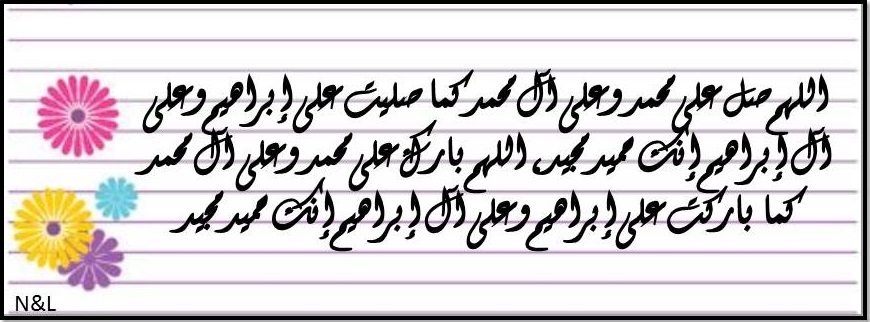 اللهم صل على محمد وعلى آل محمد كما صليت على إبراهيم وعلى
آل إبراهيم إنك حميد مجيد، اللهم بارك على محمد وعلى آل محمد
كما باركت على إبراهيم وعلى آل إبراهيم إنك حميد مجيد
N&L